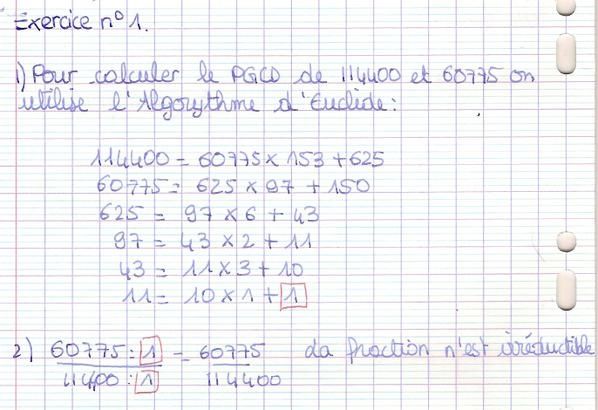 Exercice n° 1.
1) Pour calculer le PGCD de 114400 et 60775 on
utilise l'Algorythme d'Euclide :
114400 = 60775 × 153 + 625
60775 = 625 × 97 + 150
625 = 97 × 6 + 43
97 = 43 × 2 + 11
43 = 11 × 3 + 10
11 = 10 × 1 + 1
2) 60775 : 1 = 60775 La fraction n'est irréductible
11400 : 1 114400